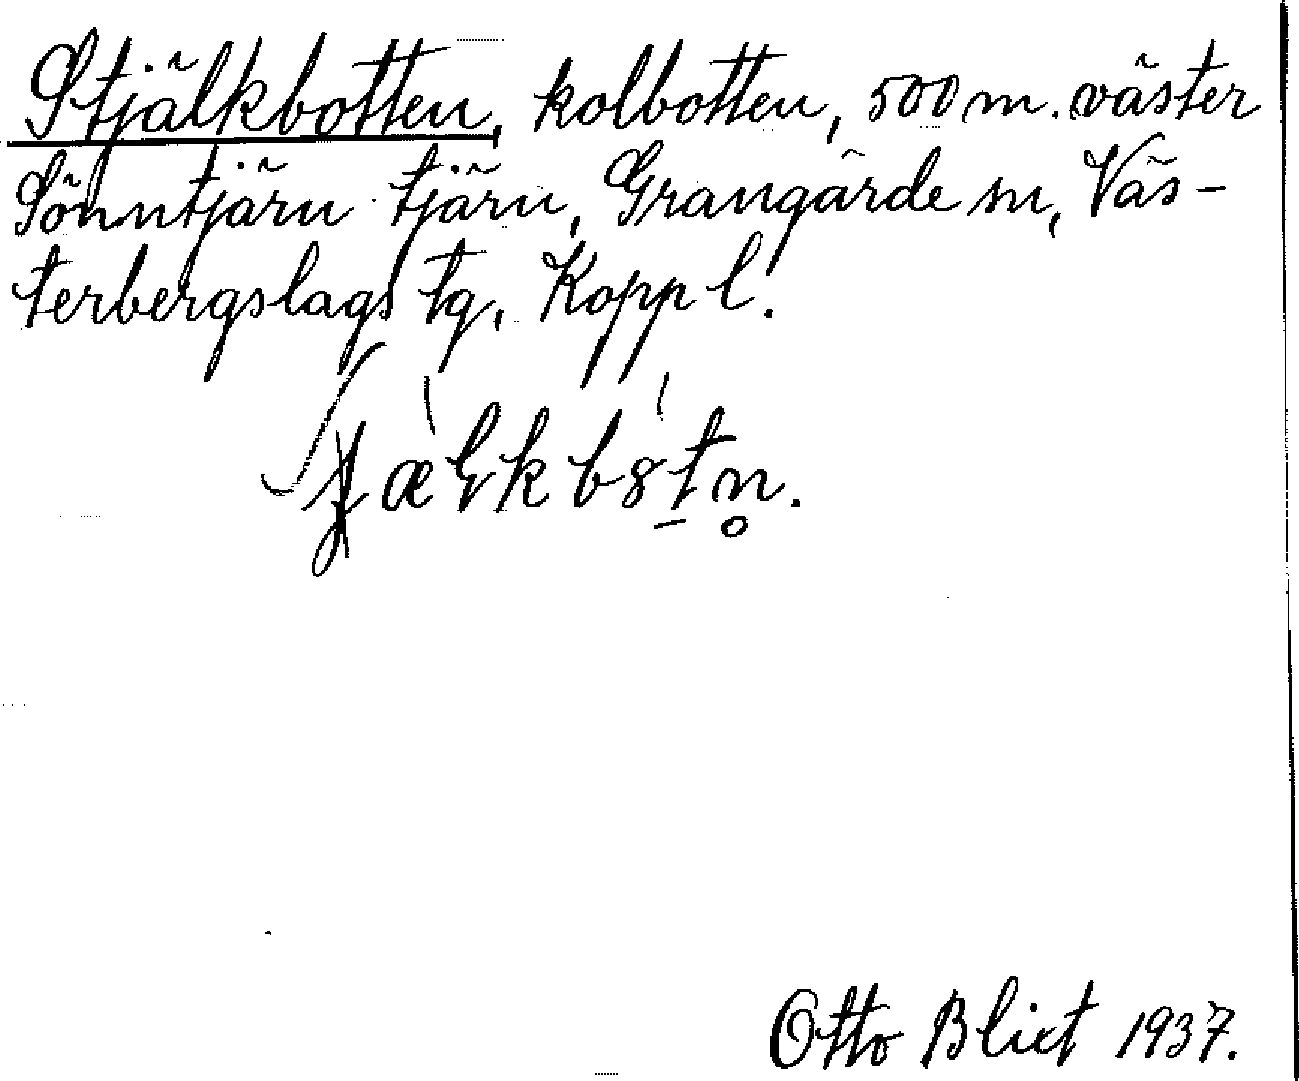 Stjälkbotten, kolbotten, 500 m. väster
Sönntjärn tjärn, Grangärde sn, Väs-
terbergslags tg, Kopp l.
Otto Blixt 1937.